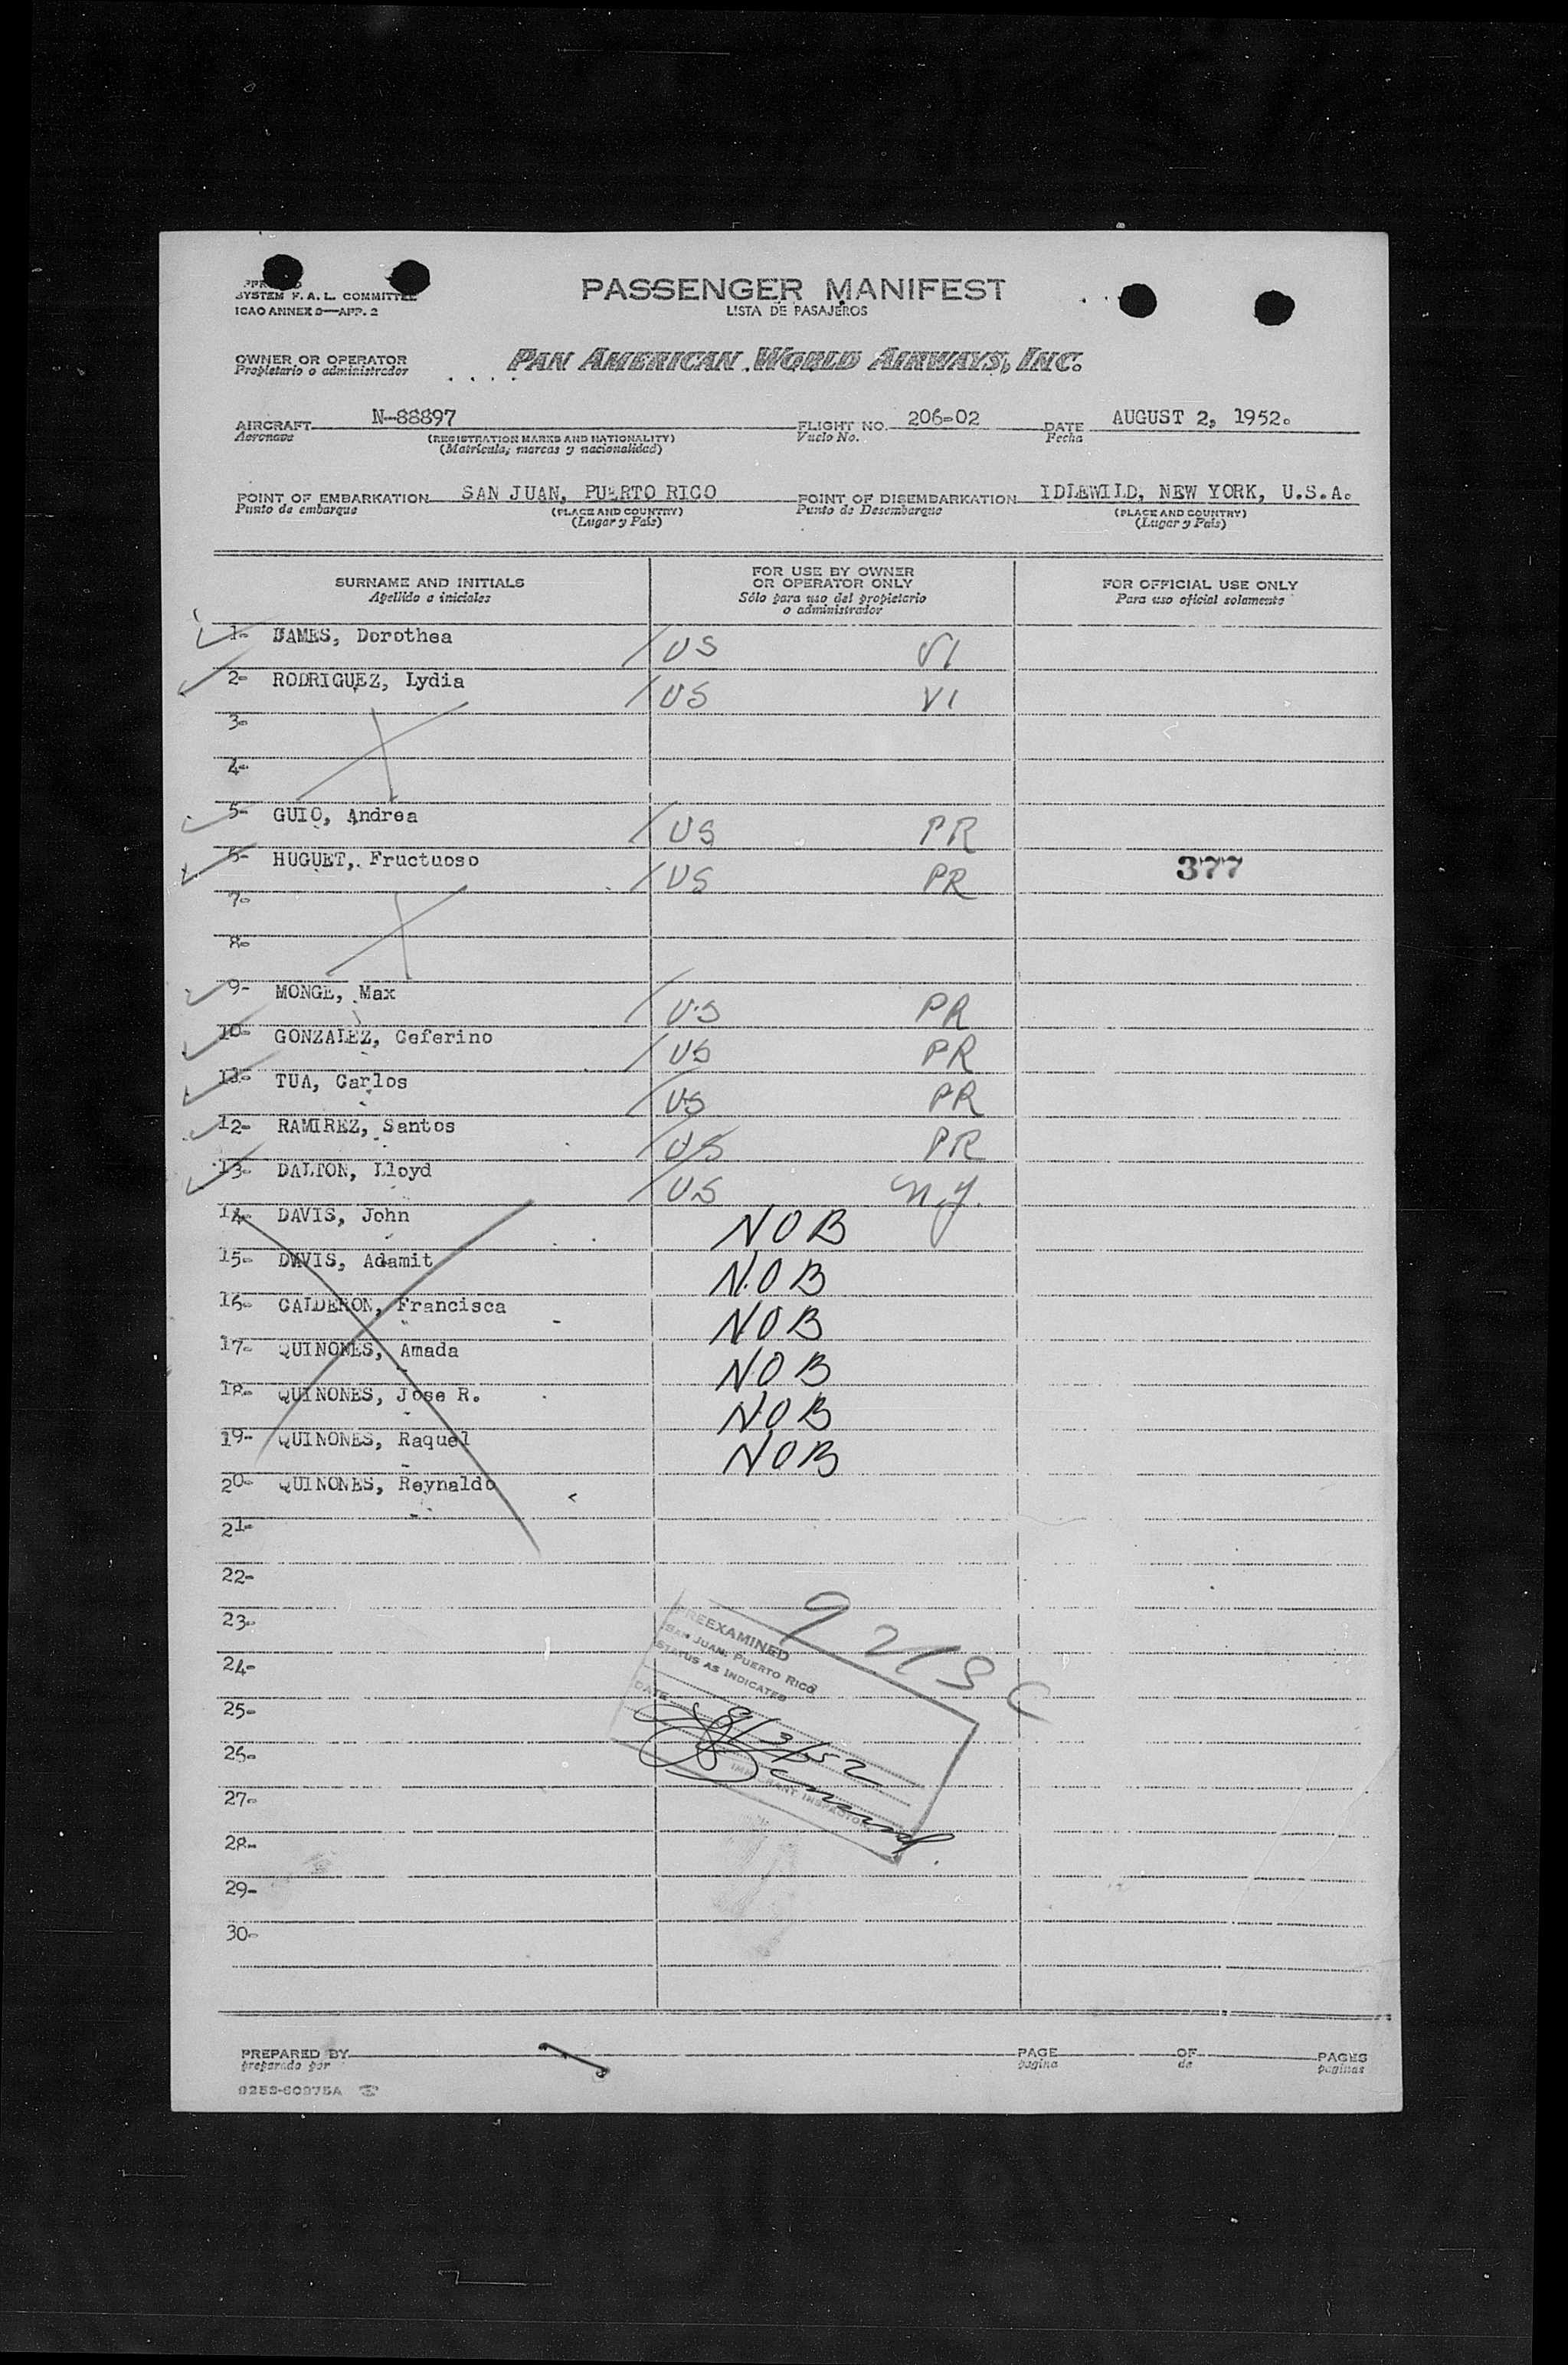 SYSTEM F. A. L. COMMITTEE
ICAO ANNEX 9—APP. 2
PASSENGER MANIFEST
LISTA DE PASAJEROS
OWNER OR OPERATOR
Propietario o administrador
PAN AMERICAN WORLD AIRWAYS, INC.
AIRCRAFT N-88897 FLIGHT NO. 206-02 DATE AUGUST 2, 1952.
Aeronave (REGISTRATION MARKS AND NATIONALITY) Vuelo No. Fecha
(Matrícula, marcas y nacionalidad)
POINT OF EMBARKATION SAN JUAN, PUERTO RICO POINT OF DISEMBARKATION IDLEWILD, NEW YORK, U.S.A.
Punto de embarque (PLACE AND COUNTRY) Punto de Desembarque (PLACE AND COUNTRY)
(Lugar y País) (Lugar y País)
SURNAME AND INITIALS
Apellido a iniciales
FOR USE BY OWNER
OR OPERATOR ONLY
Sólo para uso del propietario
o administrador
FOR OFFICIAL USE ONLY
Para uso oficial solamente
1- JAMES, Dorothea / US VI
2- RODRIGUEZ, Lydia / US VI
3-
4-
5- GUIO, Andrea / US PR
6- HUGUET, Fructuoso / US PR 377
7-
8-
9- MONGE, Max / US PR
10- GONZALEZ, Ceferino / US PR
11- TUA, Carlos / US PR
12- RAMIREZ, Santos / US PR
13- DALTON, Lloyd / US N.Y.
14- DAVIS, John NOB
15- DAVIS, Adamit NOB
16- CALDERON, Francisca NOB
17- QUINONES, Amada NOB
18- QUINONES, Jose R. NOB
19- QUINONES, Raquel NOB
20- QUINONES, Reynaldo
21-
22-
23-
24-
25-
26-
27-
28-
29-
30-
9 21SC
PREEXAMINED
SAN JUAN, PUERTO RICO
STATUS AS INDICATED
DATE 8/2/52
IMMIGRANT INSPECTOR
PREPARED BY PAGE OF PAGES
preparado por pagina de paginas